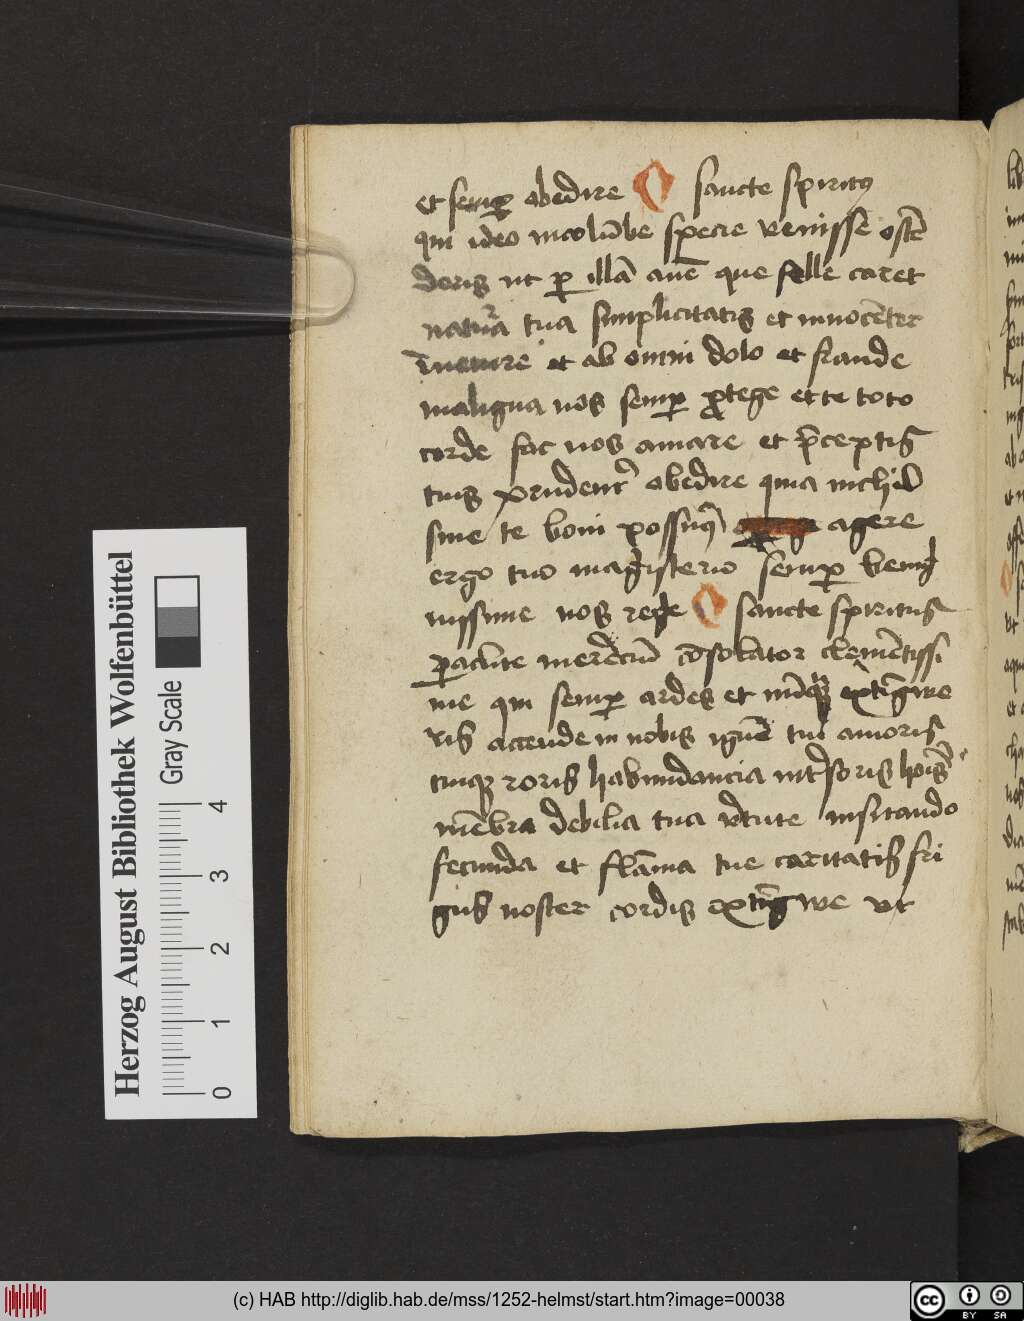 et semꝑ obedire O sancte spiritꝯ
qui ideo in colūbe specie venisse ostē
deris ut ꝑ illā auē que felle caret
natura tua simplicitatis et innocēter
et ab omni dolo et fraude
maligna nos semꝑ ꝓtege et te toto
corde fac nos amare et p̄ceptis
tuis prudent᷑ obedire quia nichil
sine te boni possumꝯ agere
ergo tuo magisterio semꝑ benig
nissime nos rege O sancte spiritus
ꝑaclite merēciū cōsolator clemētissi
me qui semꝑ ardes et nūqꝫ extīgwe
ris accende in nobis ignē tui amoris
tuiqꝫ roris habundancia hoīs
mēbra debilia tua v᷑tute visitando
fecunda et flāma tue caritatis fri
gus noster cordis extīgwe ut
Herzog August Bibliothek Wolfenbüttel
Gray Scale
0 1 2 3 4
(c) HAB http://diglib.hab.de/mss/1252-helmst/start.htm?image=00038
cc BY SA